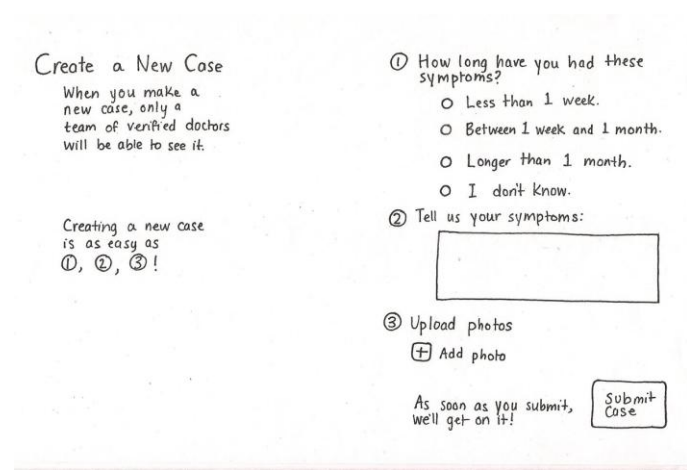 Create a New Case
When you make a
new case, only a
team of verified doctors
will be able to see it.
Creating a new case
is as easy as
①, ②, ③!
① How long have you had these
symptoms?
Less than 1 week.
Between 1 week and 1 month.
Longer than 1 month.
I don't know.
② Tell us your symptoms:
③ Upload photos
+ Add photo
As soon as you submit,
we'll get on it!
Submit
Case